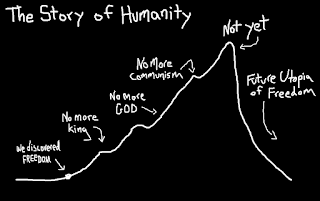 The Story of Humanity
Not yet
No more
Communism
No more
GOD
No more
king
we discovered
FREEDOM
Future Utopia
of Freedom